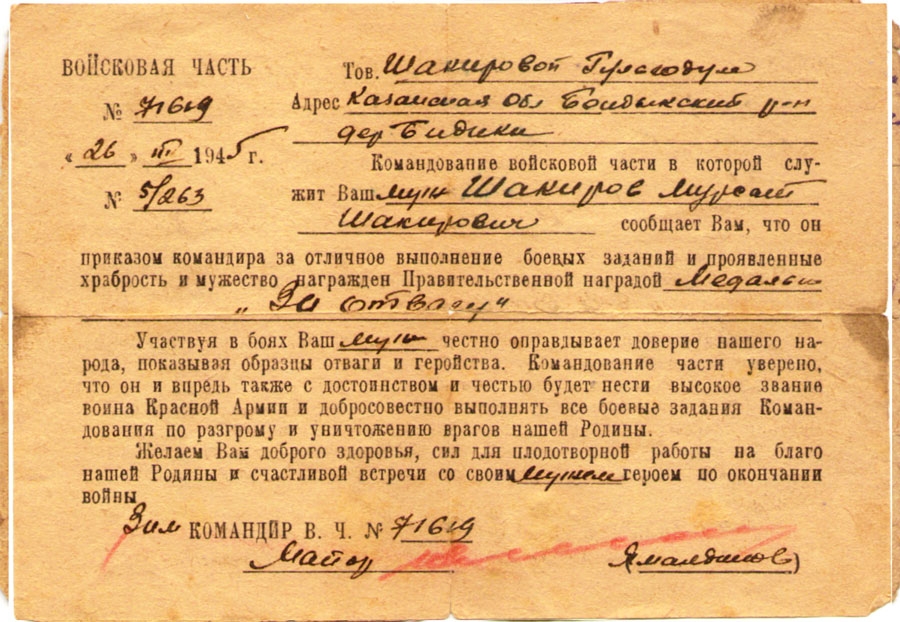 ВОЙСКОВАЯ ЧАСТЬ
№ 71619
« 26 » III 1945 г.
№ 5/263
Тов. Шакировой
Адрес Казанская обл р-н
дер
Командование войсковой части в которой слу-
жит Ваш муж Шакиров
Шакирович сообщает Вам, что он
приказом командира за отличное выполнение боевых заданий и проявленные
храбрость и мужество награжден Правительственной наградой Медалью
„За отвагу“
Участвуя в боях Ваш муж честно оправдывает доверие нашего на-
рода, показывая образцы отваги и геройства. Командование части уверено,
что он и впредь также с достоинством и честью будет нести высокое звание
воина Красной Армии и добросовестно выполнять все боевые задания Коман-
дования по разгрому и уничтожению врагов нашей Родины.
Желаем Вам доброго здоровья, сил для плодотворной работы на благо
нашей Родины и счастливой встречи со своим мужем героем по окончании
войны
Зам КОМАНДИР В. Ч. № 71619
Майор